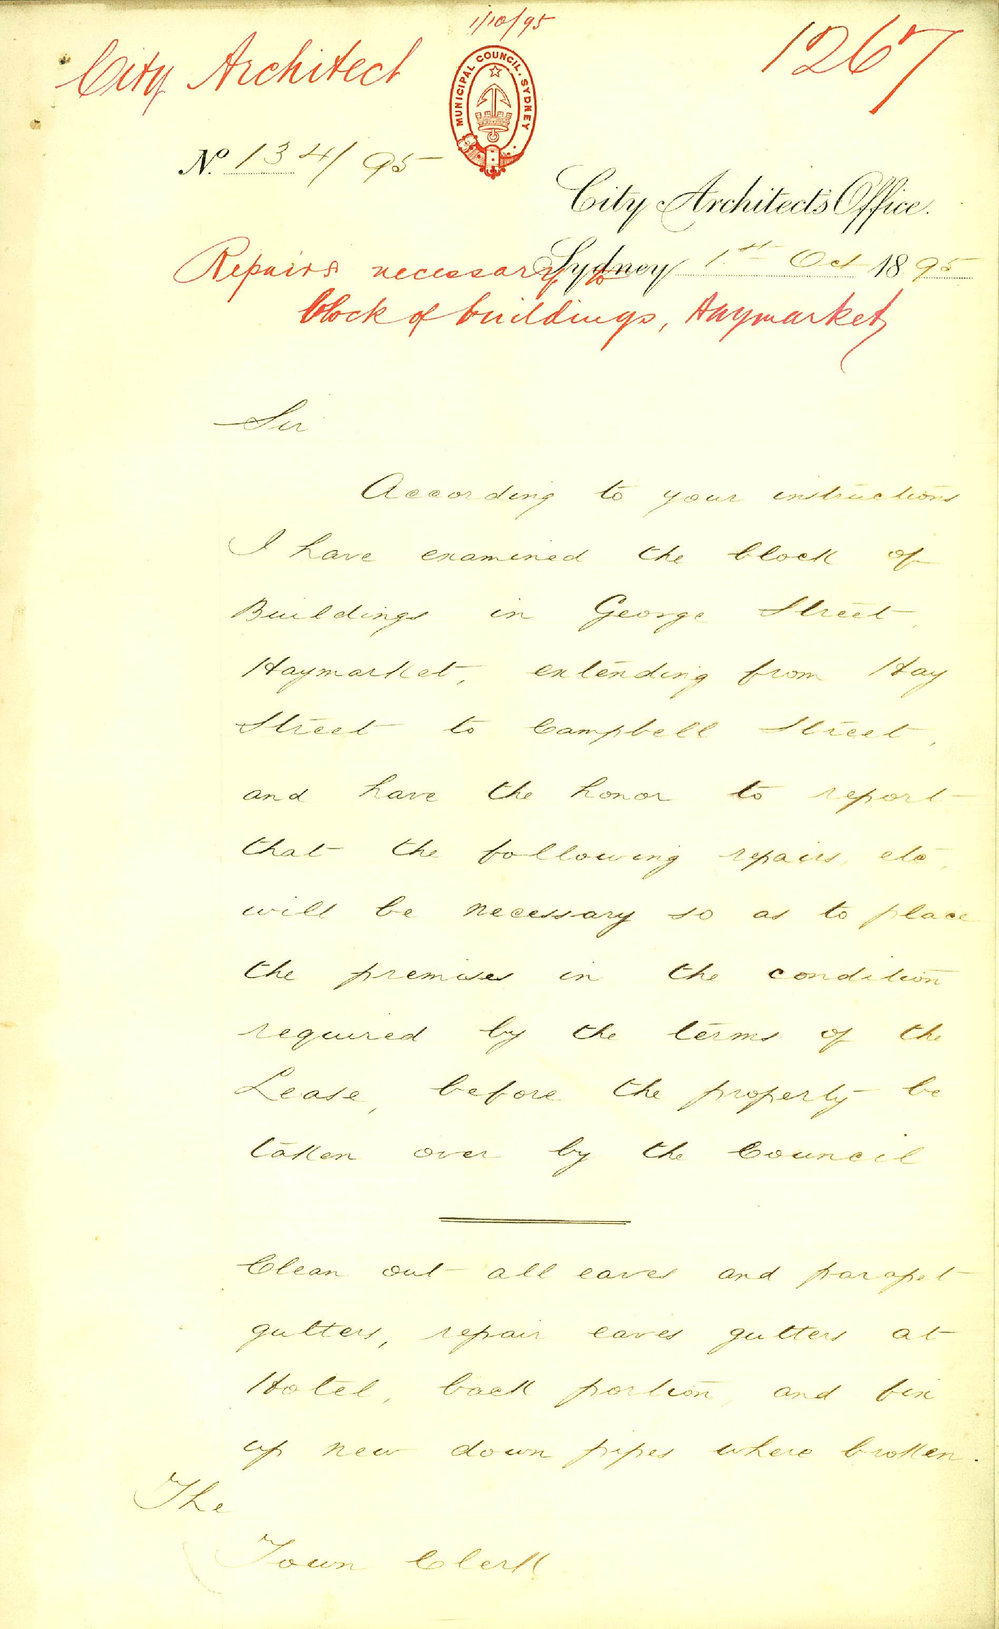 1/10/95
City Architect
1267
MUNICIPAL COUNCIL. SYDNEY
No. 134/95
City Architect's Office.
Sydney 1st Oct 1895
Repairs necessary to
block of buildings, Haymarket
Sir
According to your instructions
I have examined the block of
Buildings in George Street,
Haymarket, extending from Hay
Street to Campbell Street,
and have the honor to report
that the following repairs etc.
will be necessary so as to place
the premises in the condition
required by the terms of the
Lease, before the property be
taken over by the Council
Clean out all eaves and parapet
gutters, repair eaves gutters at
Hotel, back portion, and fix
up new down pipes where broken.
The
Town Clerk